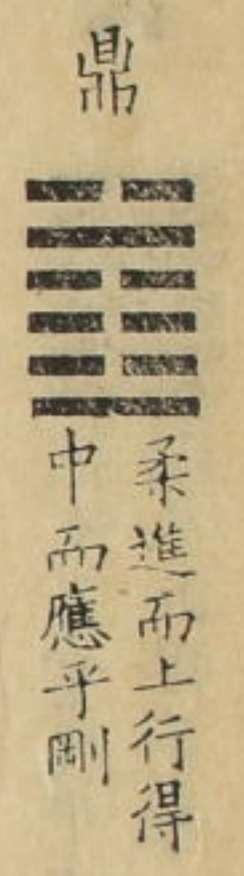 鼎
柔進而上行得
中而應乎剛